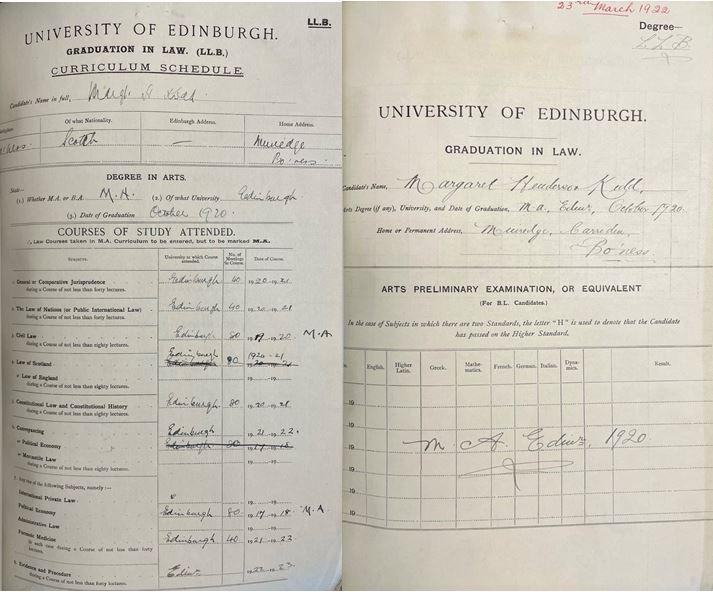 LL.B.
UNIVERSITY OF EDINBURGH.
GRADUATION IN LAW. (LL.B.)
CURRICULUM SCHEDULE.
Candidate's Name in full,
Of what Nationality. Edinburgh Address. Home Address.
Scotch — Muiredge
Bo'ness
DEGREE IN ARTS.
State—
(1.) Whether M.A. or B.A. M.A. (2.) Of what University Edinburgh
(3.) Date of Graduation October 1920.
COURSES OF STUDY ATTENDED.
Law Courses taken in M.A. Curriculum to be entered, but to be marked M.A.
SUBJECTS. University at which Course attended. No. of Meetings in Course. Date of Course.
General or Comparative Jurisprudence Edinburgh 40 1920-1921
during a Course of not less than forty lectures.
The Law of Nations (or Public International Law) Edinburgh 40 1920-1921
during a Course of not less than forty lectures.
Civil Law Edinburgh 80 1919-1920 M.A
during a Course of not less than eighty lectures.
Edinburgh 1920-21
Law of Scotland Edinburgh 80
Law of England 19 19
during a Course of not less than eighty lectures.
Constitutional Law and Constitutional History Edinburgh 80 1920-1921
during a Course of not less than eighty lectures.
Conveyancing Edinburgh 1921-22.
Political Economy Edinburgh 80 1917-1918
Mercantile Law 19 19
during a Course of not less than eighty lectures.
Any one of the following Subjects, namely:—
International Private Law 19 19
Political Economy Edinburgh 80 1917-1918 M.A
Administrative Law 19 19
Forensic Medicine Edinburgh 40 1921-1923
in each case during a Course of not less than forty lectures.
Evidence and Procedure Edinr 1922-1923
during a Course of not less than forty lectures.
23rd March 1922
Degree—
LLB.
UNIVERSITY OF EDINBURGH.
GRADUATION IN LAW.
Candidate's Name, Margaret Henderson Kidd,
Arts Degree (if any), University, and Date of Graduation, M.A., Edinr, October 1920.
Home or Permanent Address, Muiredge, Carriden,
Bo'ness.
ARTS PRELIMINARY EXAMINATION, OR EQUIVALENT
(For B.L. Candidates.)
In the case of Subjects in which there are two Standards, the letter "H" is used to denote that the Candidate
has passed on the Higher Standard.
English. Higher Latin. Greek. Mathematics. French. German. Italian. Dynamics. Result.
19
19
19
M. A. Edinr. 1920
19
19
19
19